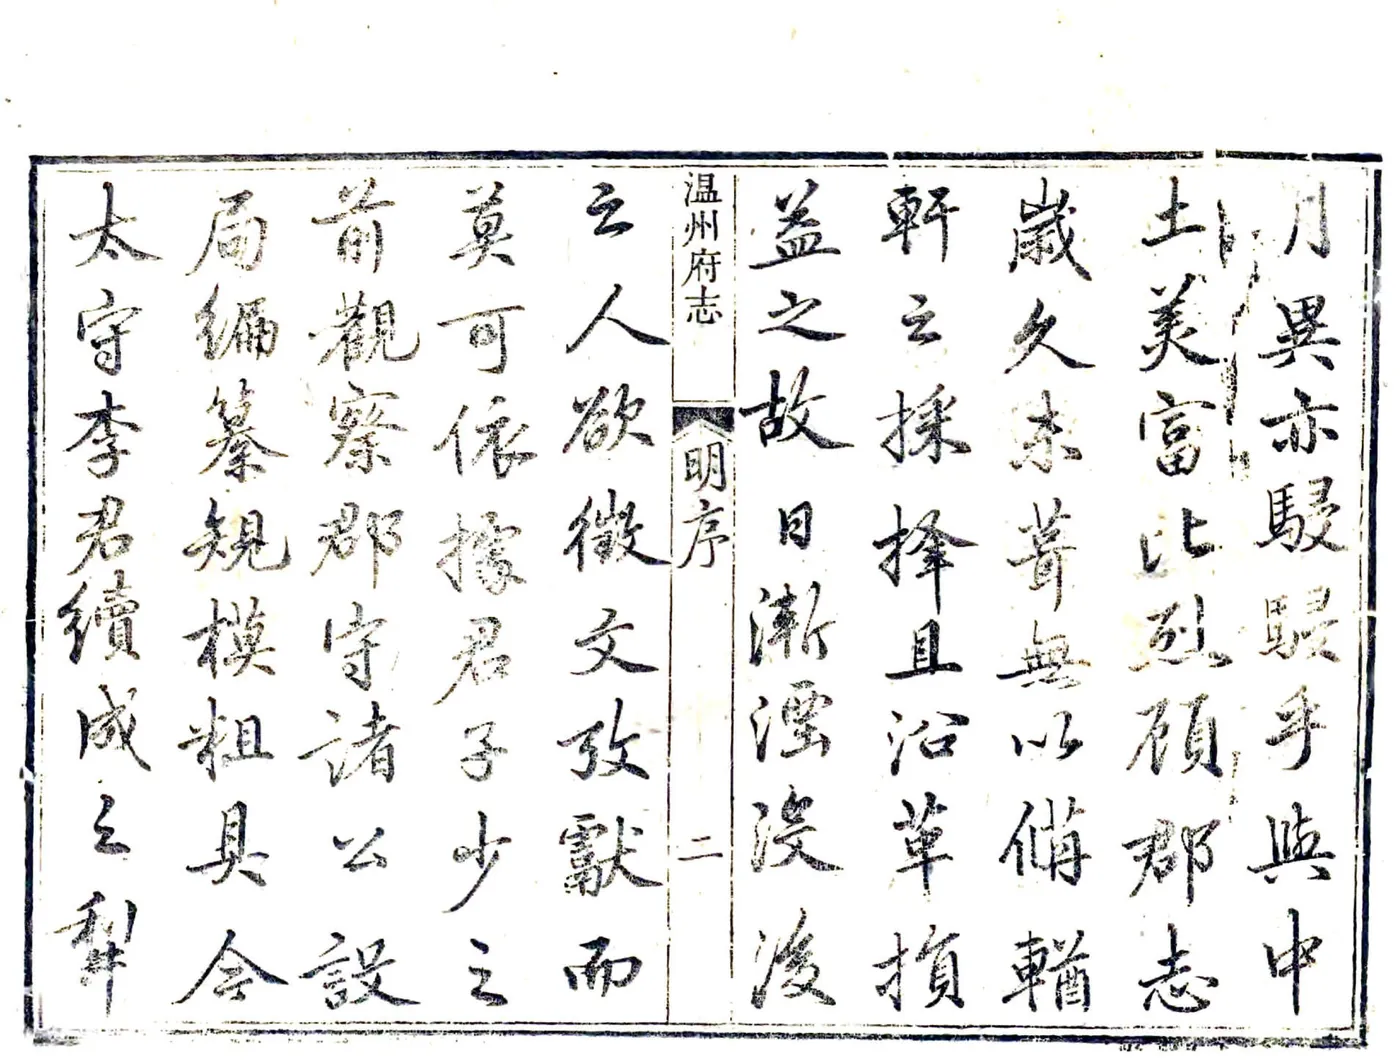 月異亦駸駸乎與中
土美富比烈顧郡志
嵗久未葺無以備輶
軒之採擇且沿革損
益之故日漸湮没後
温州府志
明序
二
之人欲徵文攷獻而
莫可依據君子少之
前觀察郡守諸公設
局編纂規模粗具今
太守李君續成之犁